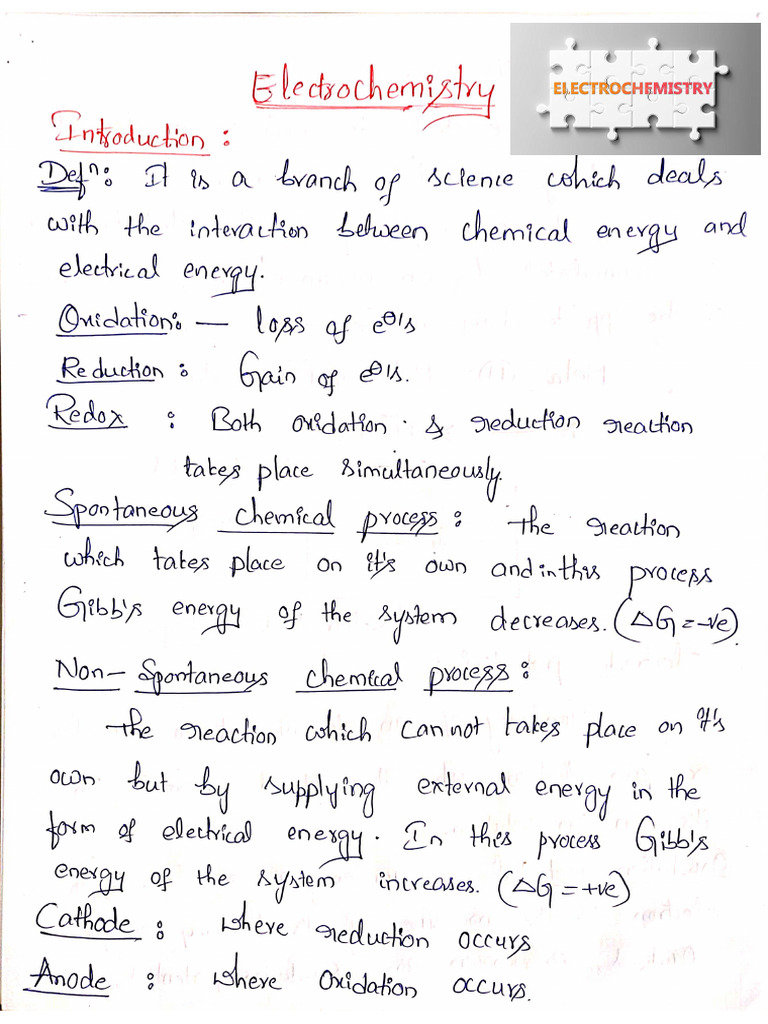 Electrochemistry
ELECTROCHEMISTRY
Introduction :
Defⁿ: It is a branch of science which deals
with the interaction between chemical energy and
electrical energy.
Oxidation:- loss of e⊖'s
Reduction : Gain of e⊖'s.
Redox : Both oxidation & reduction reaction
takes place simultaneously.
Spontaneous chemical process : The reaction
which takes place on it's own and in this process
Gibb's energy of the system decreases. (ΔG = -ve).
Non-Spontaneous chemical process :
The reaction which can not takes place on it's
own but by supplying external energy in the
form of electrical energy. In this process Gibb's
energy of the system increases. (ΔG = +ve)
Cathode : where reduction occurs
Anode : where oxidation occurs.